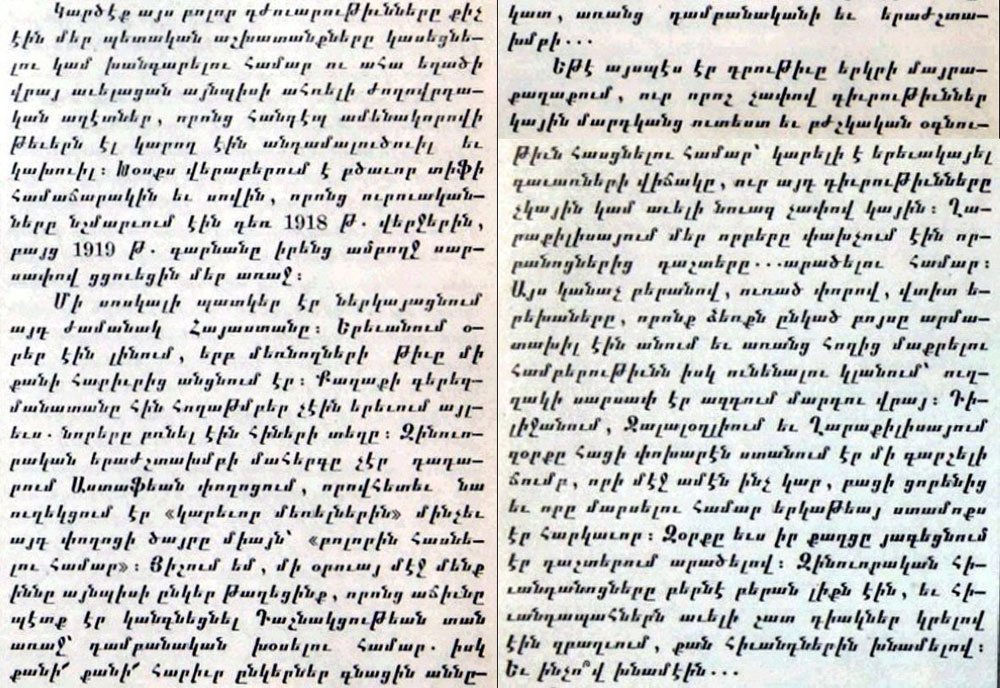 Կարծէք այս բոլոր դժուարութիւնները քիչ
էին մեր պետական աշխատանքները կասեցնե-
լու կամ խանգարելու համար ու ահա եղածի
վրայ աւելացան այնպիսի ահռելի ժողովրդա-
կան աղէտներ, որոնց հանդէպ ամենակորովի
թեւերն էլ կարող էին անդամալուծուիլ եւ
կախուիլ։ Խօսքս վերաբերում է բծաւոր տիֆի
համաճարակին եւ սովին, որոնց ուրուական-
ները նշմարւում էին դեռ 1918 թ. վերջերին,
բայց 1919 թ. գարնանը իրենց ամբողջ սար-
սափով ցցուեցին մեր առաջ։
Մի սոսկալի պատկեր էր ներկայացնում
այդ ժամանակ Հայաստանը։ Երեւանում օ-
րեր էին լինում, երբ մեռնողների թիւը մի
քանի հարիւրից անցնում էր։ Քաղաքի գերեզ-
մանատանը հին հողաթմբեր չէին երեւում այլ-
եւս. նորերը բռնել էին հիների տեղը։ Զինուո-
րական երաժշտախմբի մահերգը չէր դադա-
րում Աստաֆեան փողոցում, որովհետեւ նա
ուղեկցում էր «կարեւոր մեռելներին» մինչեւ
այդ փողոցի ծայրը միայն՝ «բոլորին հասնե-
լու համար»։ Յիշում եմ, մի օրուայ մէջ մենք
իննը այնպիսի ընկեր թաղեցինք, որոնց աճիւնը
պէտք էր կանգնեցնել Դաշնակցութեան տան
առաջ՝ դամբանական խօսելու համար. իսկ
քանի՜ քանի՜ հարիւր ընկերներ գնացին աննը-
կատ, առանց դամբանականի եւ երաժշտա-
խմբի...
Եթէ այսպէս էր դրութիւը երկրի մայրա-
քաղաքում, ուր որոշ չափով դիւրութիւններ
կային մարդկանց ուտեստ եւ բժշկական օգնու-
թիւն հասցնելու համար՝ կարելի է երեւակայել
գաւառների վիճակը, ուր այդ դիւրութիւնները
չկային կամ աւելի նուազ չափով կային։ Ղա-
րաքիլիսայում մեր որբերը փախչում էին որ-
բանոցներից դաշտերը...արածելու համար։
Այս կանաչ բերանով, ուռած փորով, վտիտ ե-
րեխաները, որոնք ձեռքն ընկած բոյսը արմա-
տախիլ էին անում եւ առանց հողից մաքրելու
համբերութիւնն իսկ ունենալու կլանում՝ ուղ-
ղակի սարսափ էր ազդում մարդու վրայ։ Դի-
լիջանում, Ջալալօղլիում եւ Ղարաքիլիսայում
զօրքը հացի փոխարէն ստանում էր մի գարշելի
ճումբ, որի մէջ ամէն ինչ կար, բացի ցորենից
եւ որը մարսելու համար երկաթեայ ստամոքս
էր հարկաւոր։ Զօրքը եւս իր քաղցը յագեցնում
էր դաշտերում արածելով։ Զինուորական հի-
ւանդանոցները բերնէ բերան լիքն էին, եւ հի-
ւանդապահներն աւելի շատ դիակներ կրելով
էին զբաղւում, քան հիւանդներին խնամելով։
Եւ ինչո՞վ խնամէին...